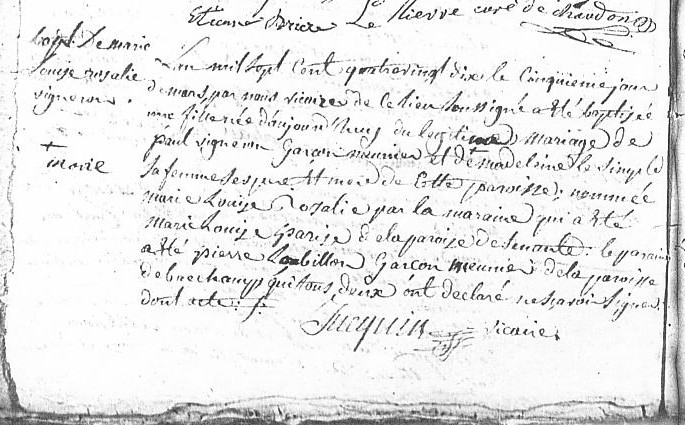 Etienne Brice Le Lievre curé de chaudon
bapt. De marie
Louise rosalie
vigneron.
† morte
L'an mil sept cent quatrevingt dix le Cinquieme jour
de mars, par nous vicaire de ce lieu soussigné a été baptisée
une fille née d'aujourd'huy du legitime mariage de
paul vigneron Garçon meunier et de madeleine le simple
sa femme ses pere et mere de Cette paroisse, nommée
marie Louise Rosalie par la maraine qui a été
marie Louise parise de la paroise de le parain
a été pierre Garçon meunier de la paroisse
de brechamp qui tous deux ont declaré ne sçavoir signer
dont acte
Jucquin vicaire